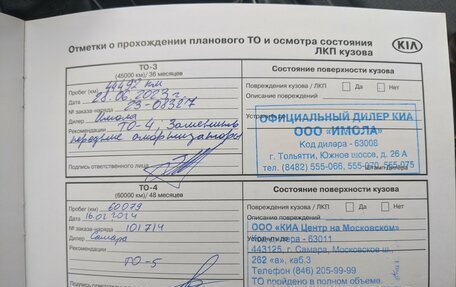 Отметки о прохождении планового ТО и осмотра состояния
ЛКП кузова
KIA
ТО-3
(45000 км) / 36 месяцев
Пробег (км) 44492 км
Дата 28.06.2023 г.
№ заказа-наряда 23-08327
Дилер Имола
Рекомендации ТО-4; Заменить
передние амортизаторы
Подпись ответственного лица
Состояние поверхности кузова
Повреждения кузова / ЛКП Да Нет
Описание повреждений
ОФИЦИАЛЬНЫЙ ДИЛЕР КИА
ООО «ИМОЛА»
Код дилера - 63008
г. Тольятти, Южное шоссе, д. 26 А
тел. (8482) 555-066, 555-070, 565-075
Штамп Дилера
ТО-4
(60000 км) / 48 месяцев
Пробег (км) 60079
Дата 16.02.2024
№ заказа-наряда 101714
Дилер Самара
Рекомендации
ТО-5
Подпись ответственного лица
Состояние поверхности кузова
Повреждения кузова / ЛКП Да Нет
Описание повреждений
ООО «КИА Центр на Московском»
Код дилера - 63011
443125, г. Самара, Московское ш.
262 «а», каб.3
Телефон (846) 205-99-99
ТО пройдено в полном объеме.